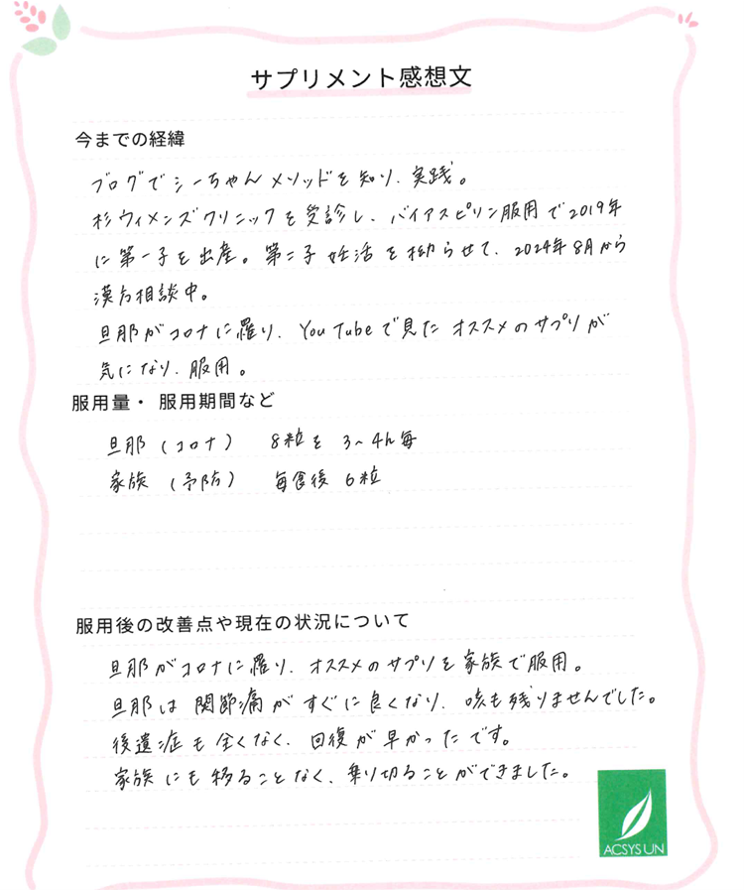 サプリメント感想文
今までの経緯
ブログでシーちゃんメソッドを知り、実践。
杉ウィメンズクリニックを受診し、バイアスピリン服用で2019年
に第一子を出産。第二子妊活を拗らせて、2024年8月から
漢方相談中。
旦那がコロナに罹り、YouTubeで見たオススメのサプリが
気になり、服用。
服用量・服用期間など
旦那(コロナ) 8粒を3~4h毎
家族(予防) 毎食後6粒
服用後の改善点や現在の状況について
旦那がコロナに罹り、オススメのサプリを家族で服用。
旦那は関節痛がすぐに良くなり、咳も残りませんでした。
後遺症も全くなく、回復が早かったです。
家族にも移ることなく、乗り切ることができました。
ACSYS UN